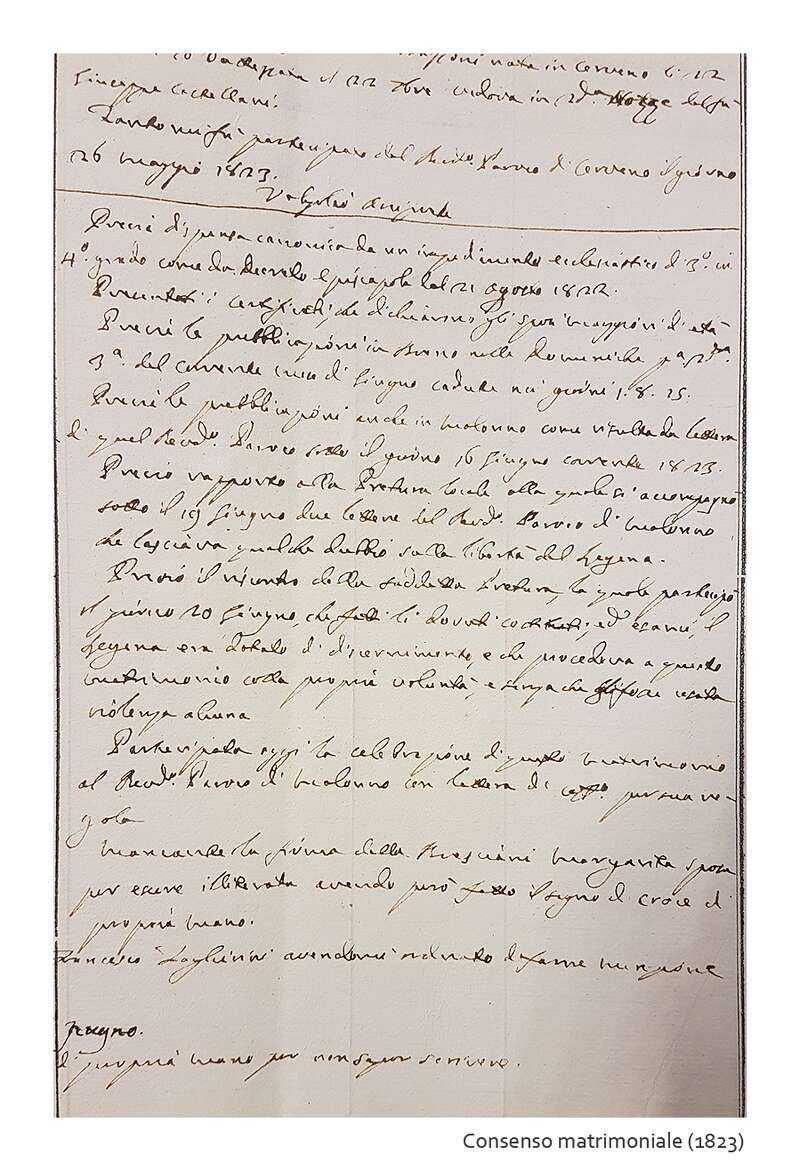 nata in Cerveno li 22
il 22 vedova in 2da. Nozze del fu
Giuseppe Castellani.
Tanto mi fu partecipato dal Revdo. Parroco di Cerveno il giorno
26 maggio 1823.
Precii dispensa canonica da un impedimento ecclesiastico di 3o. in
4o. grado come da Decreto Episcopale del 21 agosto 1822.
Presentati i certificati, che dichiarano gli sposi maggiori di età
Precii le pubblicazioni in Breno nelle Domeniche pa. 2da.
3a. del corrente mese di Giugno cadute nei giorni 1. 8. 15.
Precii le pubblicazioni anche in Malonno come risulta da lettera
di quel Revdo. Parroco sotto il giorno 16 Giugno corrente 1823.
Preciò rapporto alla Pretura locale alla quale si accompagnò
sotto il 19 Giugno due lettere del Revdo. Parroco di Malonno
che lasciava qualche dubbio sulla libertà del Legena.
Preciò il riscontro della suddetta Pretura, la quale partecipò
il giorno 20 Giugno, che fatti li dovuti ed esami, il
Legena era dotato di discernimento, e che procedeva a questo
matrimonio colla propria volontà, e senza che fosse usata
violenza alcuna
Partecipata oggi la celebrazione di questo matrimonio
al Revdo. Parroco di Malonno con lettera di per sua re-
gola
Mancante la firma della Bresciani Margarita sposa
per essere illiterata avendo però fatto il segno di croce di
propria mano.
Francesco avendomi ordinato di farne menzione
pugno.
di propria mano per non saper scrivere.
Consenso matrimoniale (1823)